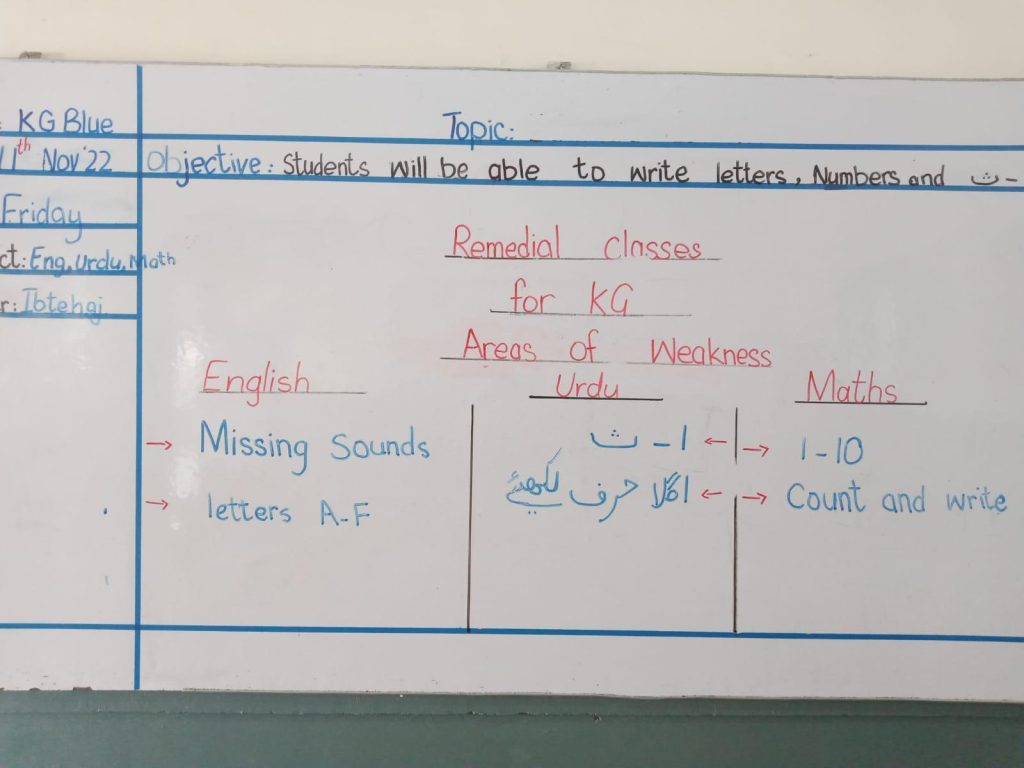 : KG Blue
11th Nov'22
Friday
ct: Eng, Urdu, Math
r: Ibtehaj
Topic:
Objective: Students will be able to write letters, Numbers and ث -
Remedial Classes
for KG
Areas of Weakness
English
→ Missing Sounds
→ letters A-F
Urdu
← ا - ث
← اگلا حرف لکھیئے
Maths
→ 1-10
→ Count and write